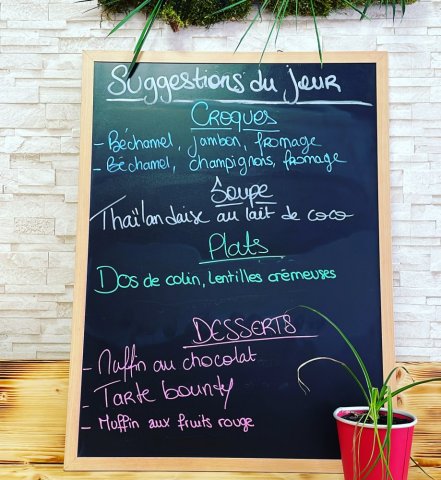 Suggestions du jour
Croques
- Béchamel, jambon, fromage
- Béchamel, champignons, fromage
Soupe
Thaïlandaise au lait de coco
Plats
Dos de colin, lentilles crémeuses
DESSERTS
- Muffin au chocolat
- Tarte bounty
- Muffin aux fruits rouge